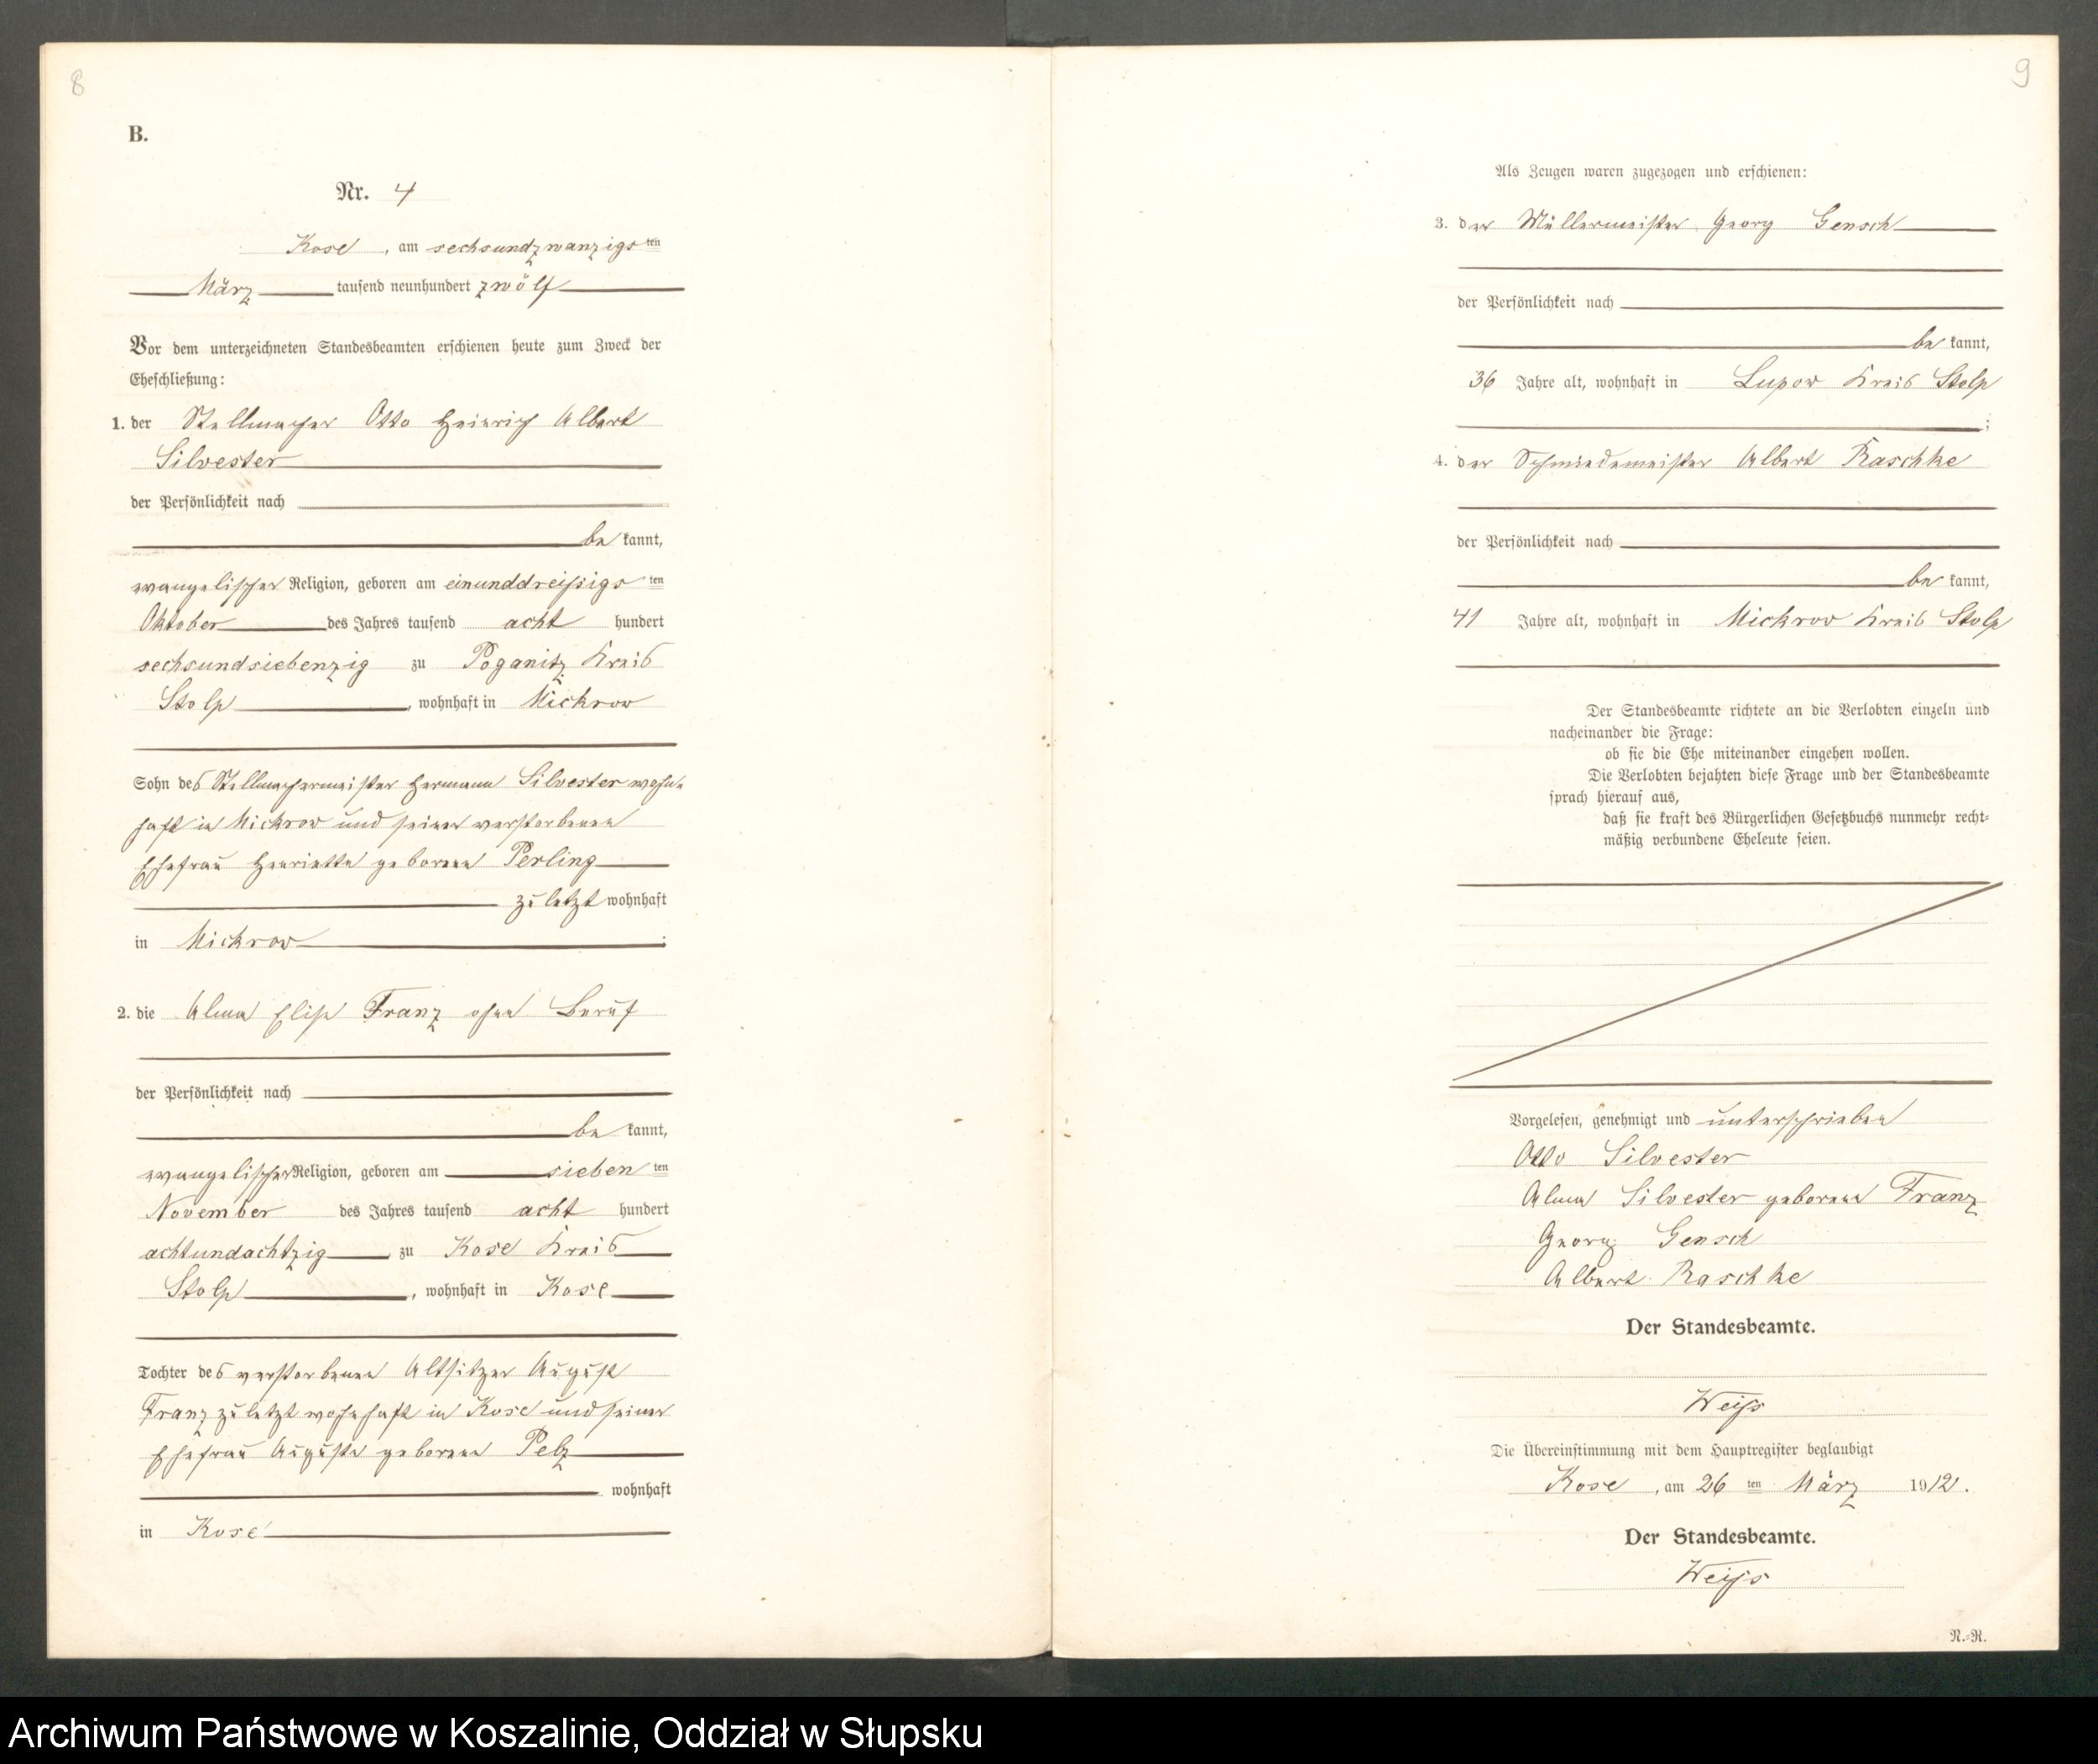 8
B.
Nr. 4
Kose, am sechsundzwanzigsten
März tausend neunhundert zwölf
Vor dem unterzeichneten Standesbeamten erschienen heute zum Zweck der
Eheschließung:
1. der Stellmacher Otto Heinrich Albert
Silvester
der Persönlichkeit nach
be kannt,
evangelischer Religion, geboren am einunddreißigsten
Oktober des Jahres tausend acht hundert
sechsundsiebenzig zu Poganitz Kreis
Stolp, wohnhaft in Mickrow
Sohn des Stellmachermeister Hermann Silvester wohn-
haft in Mickrow und seiner verstorbenen
Ehefrau Henriette geborene Perling
zuletzt wohnhaft
in Mickrow;
2. die Alma Elise Franz ohne Beruf
der Persönlichkeit nach
be kannt,
evangelischer Religion, geboren am siebenten
November des Jahres tausend acht hundert
achtundachtzig zu Kose Kreis
Stolp, wohnhaft in Kose
Tochter des verstorbenen Altsitzer August
Franz zuletzt wohnhaft in Kose und seiner
Ehefrau Auguste geborene Pelz
wohnhaft
in Kose
9
Als Zeugen waren zugezogen und erschienen:
3. der Müllermeister Georg Gensch
der Persönlichkeit nach
be kannt,
36 Jahre alt, wohnhaft in Lupow Kreis Stolp
;
4. der Schmiedemeister Albert Raschke
der Persönlichkeit nach
be kannt,
41 Jahre alt, wohnhaft in Mickrow Kreis Stolp
Der Standesbeamte richtete an die Verlobten einzeln und
nacheinander die Frage:
ob sie die Ehe miteinander eingehen wollen.
Die Verlobten bejahten diese Frage und der Standesbeamte
sprach hierauf aus,
daß sie kraft des Bürgerlichen Gesetzbuchs nunmehr recht-
mäßig verbundene Eheleute seien.
Vorgelesen, genehmigt und unterschrieben
Otto Silvester
Alma Silvester geborene Franz
Georg Gensch
Albert Raschke
Der Standesbeamte.
Weiß
Die Übereinstimmung mit dem Hauptregister beglaubigt
Kose, am 26 ten März 1912.
Der Standesbeamte.
Weiß
N.-R.
Archiwum Państwowe w Koszalinie, Oddział w Słupsku